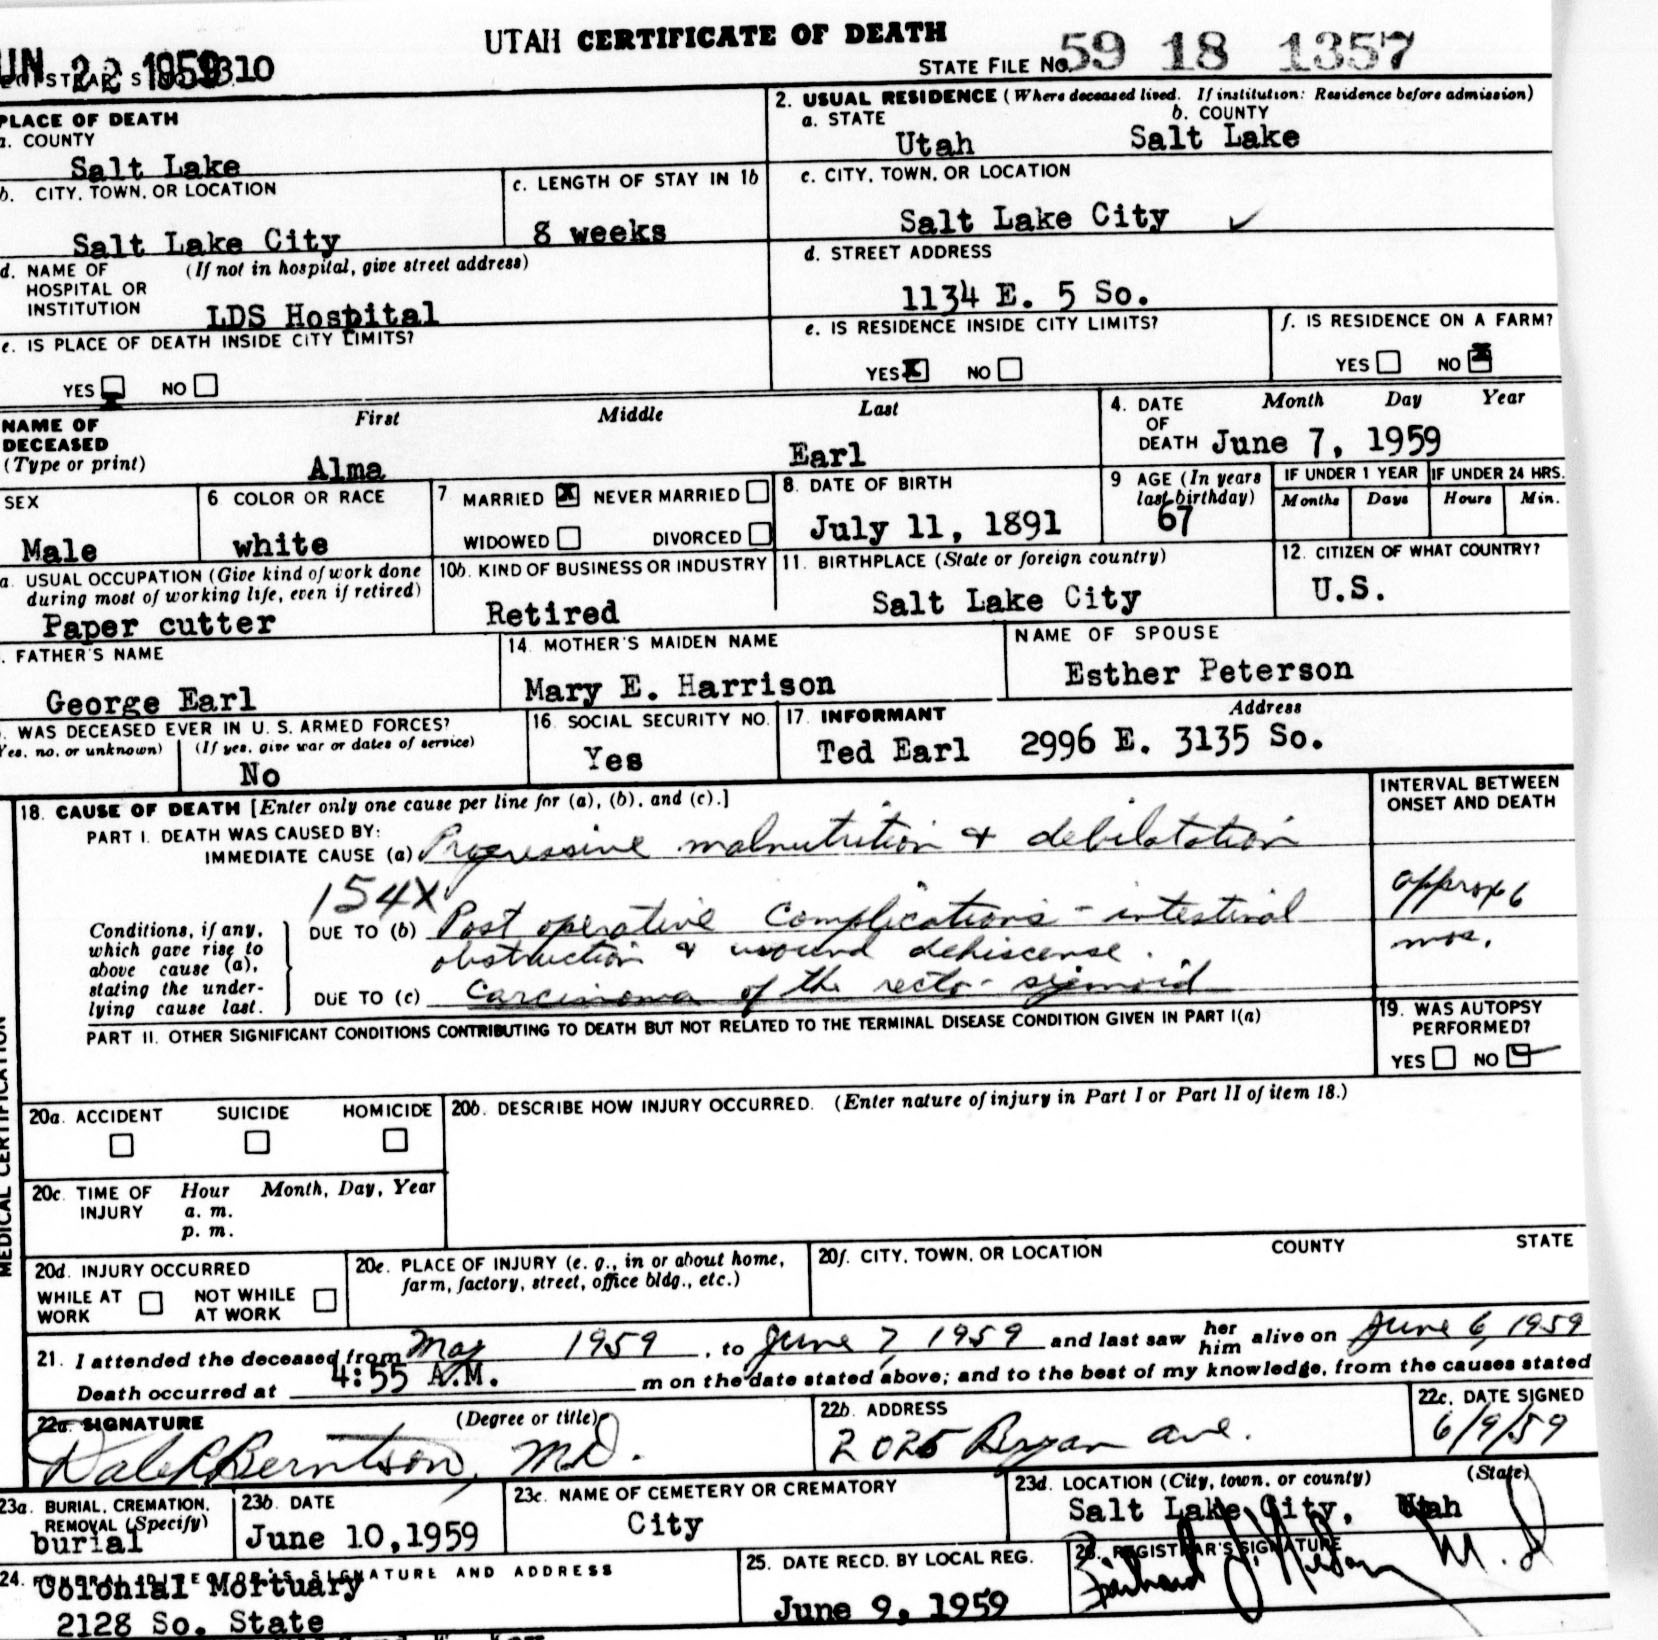 UTAH CERTIFICATE OF DEATH
JUN 22 1959 310
STATE FILE No. 59 18 1357
PLACE OF DEATH
a. COUNTY
Salt Lake
2. USUAL RESIDENCE (Where deceased lived. If institution: Residence before admission)
a. STATE b. COUNTY
Utah Salt Lake
b. CITY, TOWN, OR LOCATION
Salt Lake City
c. LENGTH OF STAY IN 1b
8 weeks
c. CITY, TOWN, OR LOCATION
Salt Lake City
d. NAME OF (If not in hospital, give street address)
HOSPITAL OR
INSTITUTION LDS Hospital
d. STREET ADDRESS
1134 E. 5 So.
e. IS PLACE OF DEATH INSIDE CITY LIMITS?
YES NO
e. IS RESIDENCE INSIDE CITY LIMITS?
YES NO
f. IS RESIDENCE ON A FARM?
YES NO
NAME OF First Middle Last
DECEASED
(Type or print) Alma Earl
4. DATE Month Day Year
OF
DEATH June 7, 1959
SEX
Male
6 COLOR OR RACE
white
7 MARRIED NEVER MARRIED
WIDOWED DIVORCED
8. DATE OF BIRTH
July 11, 1891
9 AGE (In years
last birthday)
67
IF UNDER 1 YEAR IF UNDER 24 HRS.
Months Days Hours Min.
a. USUAL OCCUPATION (Give kind of work done
during most of working life, even if retired)
Paper cutter
10b. KIND OF BUSINESS OR INDUSTRY
Retired
11. BIRTHPLACE (State or foreign country)
Salt Lake City
12. CITIZEN OF WHAT COUNTRY?
U.S.
. FATHER'S NAME
George Earl
14. MOTHER'S MAIDEN NAME
Mary E. Harrison
NAME OF SPOUSE
Esther Peterson
. WAS DECEASED EVER IN U. S. ARMED FORCES?
Yes, no, or unknown) (If yes, give war or dates of service)
No
16. SOCIAL SECURITY NO.
Yes
17. INFORMANT Address
Ted Earl 2996 E. 3135 So.
MEDICAL CERTIFICATION
18. CAUSE OF DEATH [Enter only one cause per line for (a), (b), and (c).]
INTERVAL BETWEEN
ONSET AND DEATH
PART I. DEATH WAS CAUSED BY:
IMMEDIATE CAUSE (a) Progressive malnutrition & debilatation
154X
Conditions, if any,
which gave rise to
above cause (a),
stating the under-
lying cause last.
DUE TO (b) Post operative complications - intestinal
obstruction & wound dehiscense.
approx 6
mos.
DUE TO (c) Carcinoma of the recto-sigmoid
PART II. OTHER SIGNIFICANT CONDITIONS CONTRIBUTING TO DEATH BUT NOT RELATED TO THE TERMINAL DISEASE CONDITION GIVEN IN PART I(a)
19. WAS AUTOPSY
PERFORMED?
YES NO
20a. ACCIDENT SUICIDE HOMICIDE
20b. DESCRIBE HOW INJURY OCCURRED. (Enter nature of injury in Part I or Part II of item 18.)
20c. TIME OF Hour Month, Day, Year
INJURY a. m.
p. m.
20d. INJURY OCCURRED
WHILE AT NOT WHILE
WORK AT WORK
20e. PLACE OF INJURY (e. g., in or about home,
farm, factory, street, office bldg., etc.)
20f. CITY, TOWN, OR LOCATION COUNTY STATE
21. I attended the deceased from May 1959, to June 7, 1959 and last saw her him alive on June 6, 1959
Death occurred at 4:55 A.M. m on the date stated above; and to the best of my knowledge, from the causes stated
22a. SIGNATURE (Degree or title)
Dale R Berntson, M.D.
22b. ADDRESS
2025 Bryan ave.
22c. DATE SIGNED
6/9/59
23a. BURIAL, CREMATION,
REMOVAL (Specify)
burial
23b. DATE
June 10, 1959
23c. NAME OF CEMETERY OR CREMATORY
City
23d. LOCATION (City, town, or county) (State)
Salt Lake City, Utah
24. FUNERAL DIRECTOR'S SIGNATURE AND ADDRESS
Colonial Mortuary
2128 So. State
25. DATE RECD. BY LOCAL REG.
June 9, 1959
26. REGISTRAR'S SIGNATURE
M.D